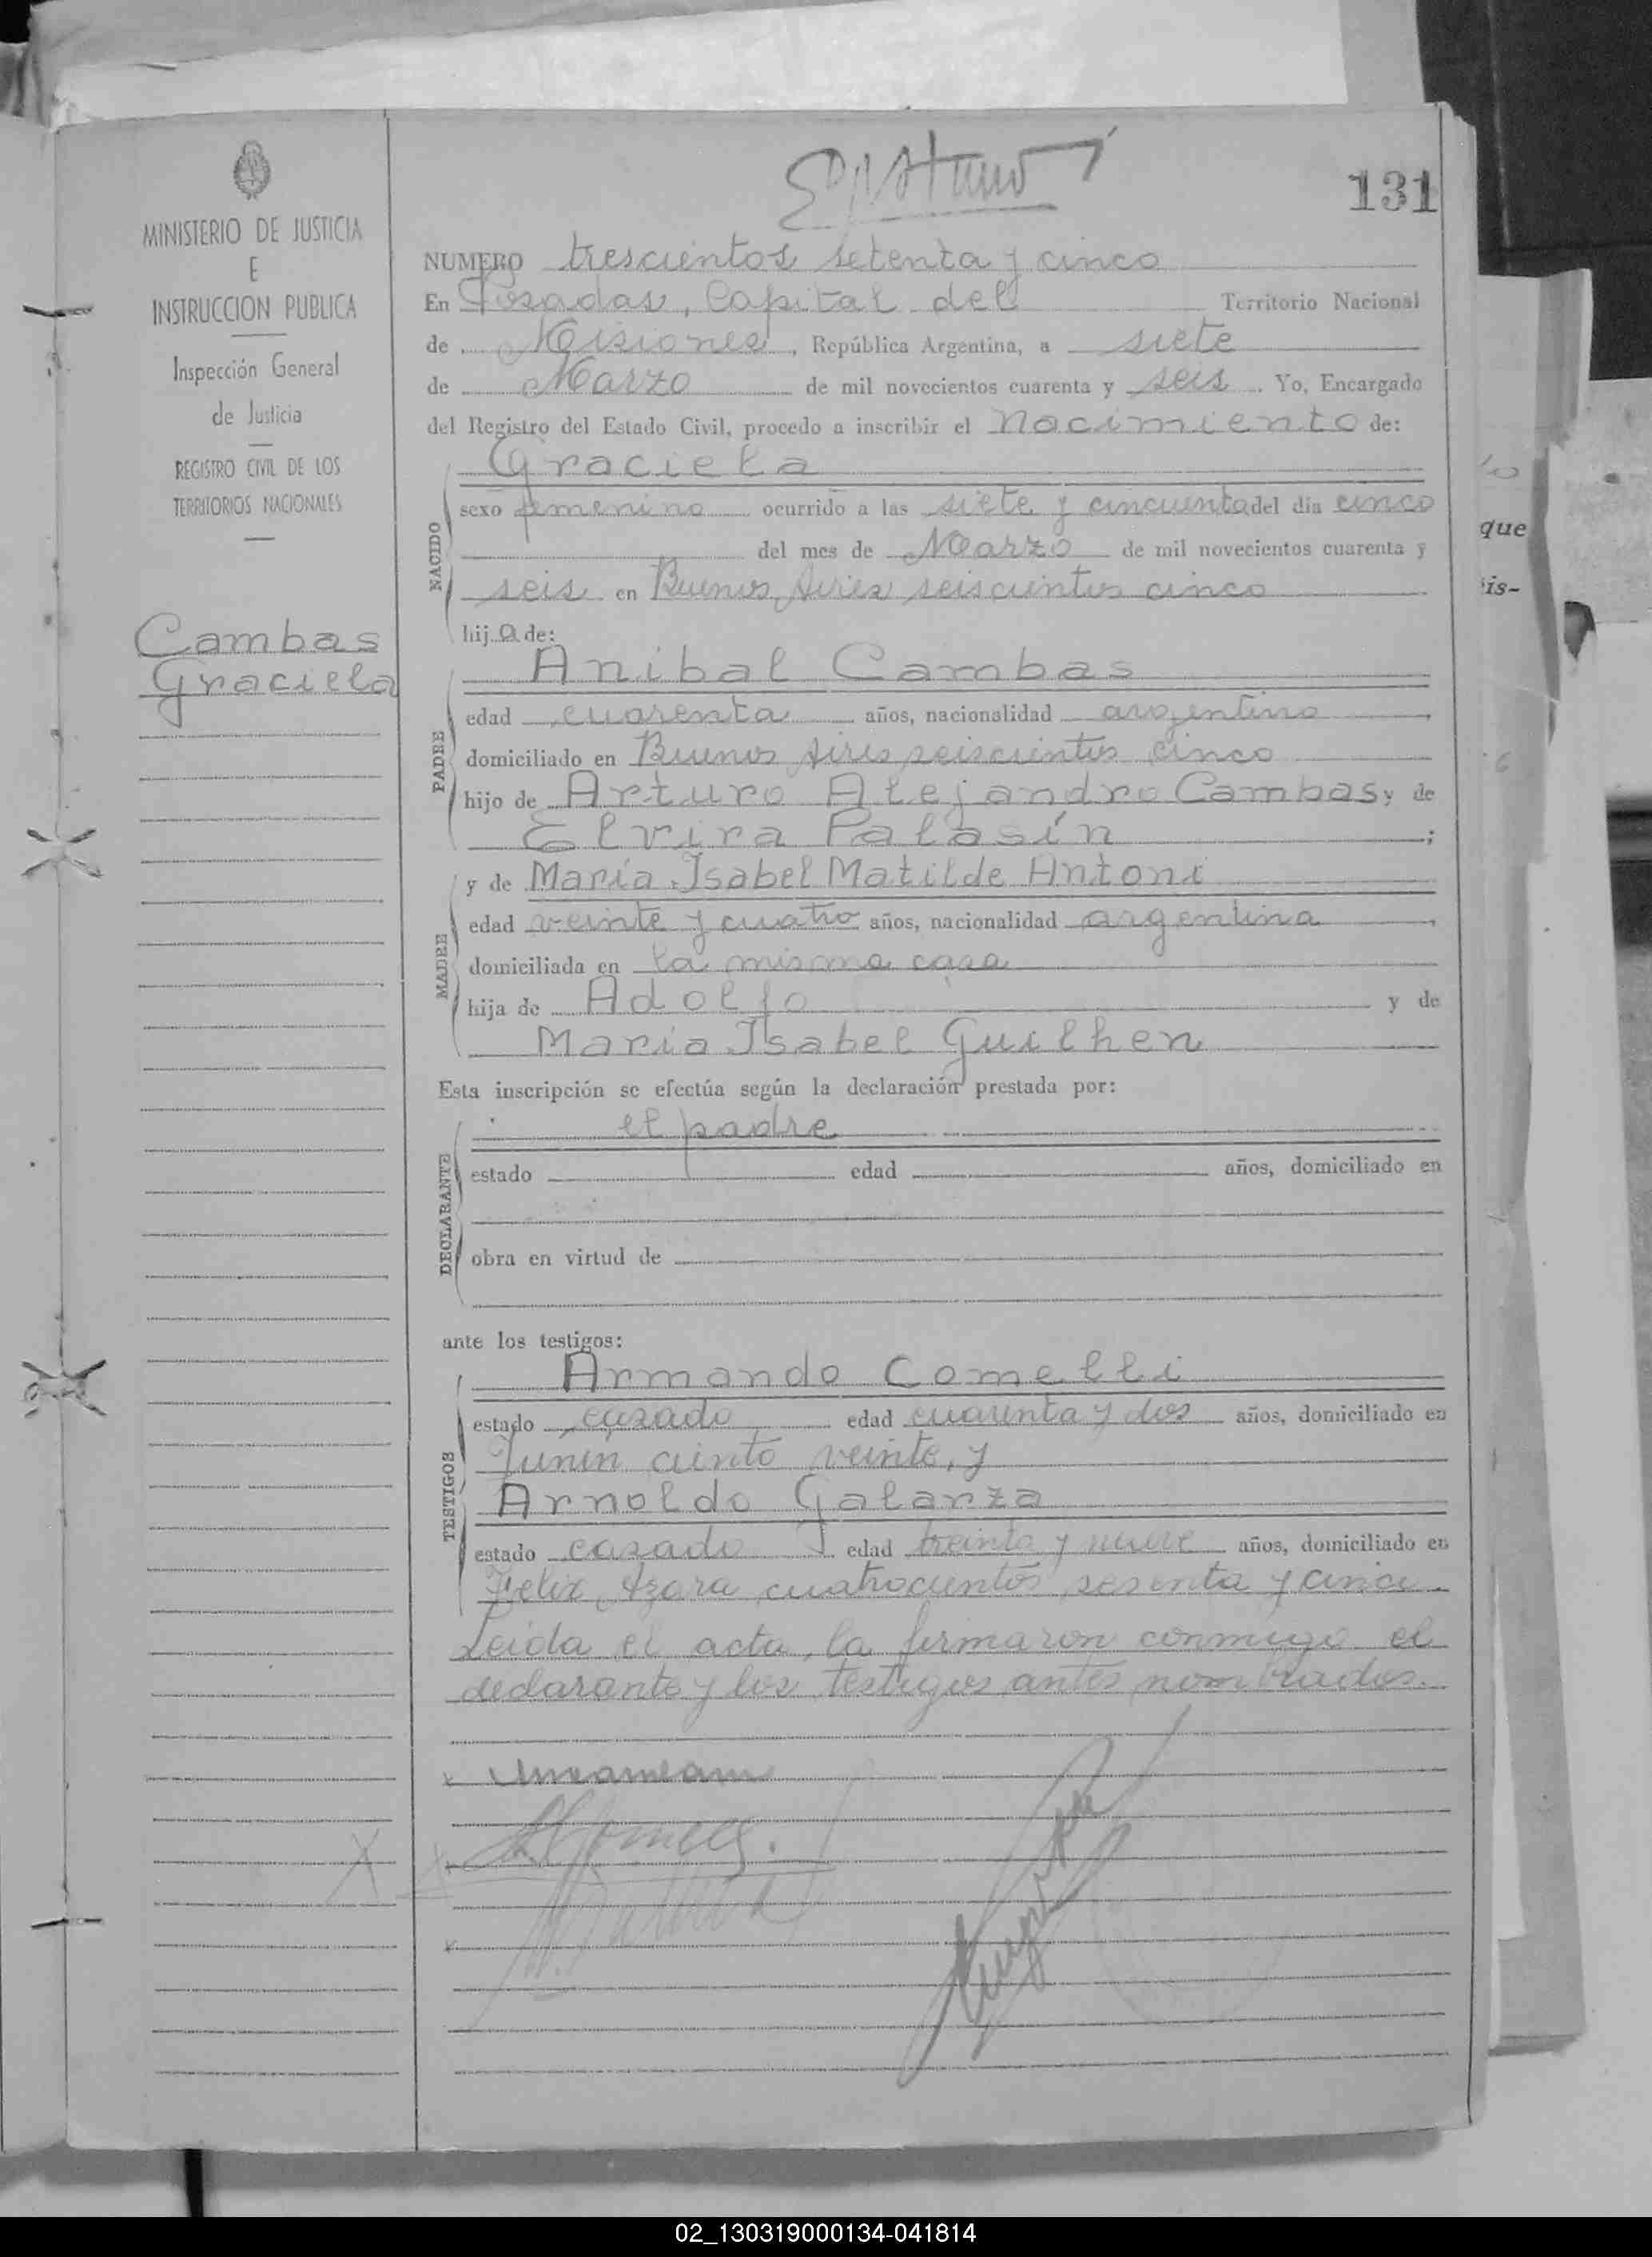 131
MINISTERIO DE JUSTICIA
E
INSTRUCCION PUBLICA
Inspección General
de Justicia
REGISTRO CIVIL DE LOS
TERRITORIOS NACIONALES
Cambas
Graciela
NUMERO trescientos setenta y cinco
En Posadas, Capital del Territorio Nacional
de Misiones, República Argentina, a siete
de Marzo de mil novecientos cuarenta y seis. Yo, Encargado
del Registro del Estado Civil, procedo a inscribir el Nacimiento de:
Graciela
NACIDO
sexo femenino ocurrido a las siete y cincuenta del día cinco
del mes de Marzo de mil novecientos cuarenta y
seis en Buenos Aires seiscientos cinco
hija de:
Anibal Cambas
PADRE
edad cuarenta años, nacionalidad argentino,
domiciliado en Buenos Aires seiscientos cinco
hijo de Arturo Alejandro Cambas y de
Elvira Palasín;
y de María Isabel Matilde Antoni
MADRE
edad veinte y cuatro años, nacionalidad argentina,
domiciliada en la misma casa
hija de Adolfo y de
María Isabel Guilhen
Esta inscripción se efectúa según la declaración prestada por:
el padre
DECLARANTE
estado edad años, domiciliado en
obra en virtud de
ante los testigos:
Armando Comelli
TESTIGOS
estado casado edad cuarenta y dos años, domiciliado en
Junín ciento veinte, y
Arnoldo Galarza
estado casado edad treinta y nueve años, domiciliado en
Felix Azara cuatrocientos sesenta y cinco.
Leida el acta, la firmaron conmigo el
declarante y los testigos antes nombrados.
que
is-
02_130319000134-041814